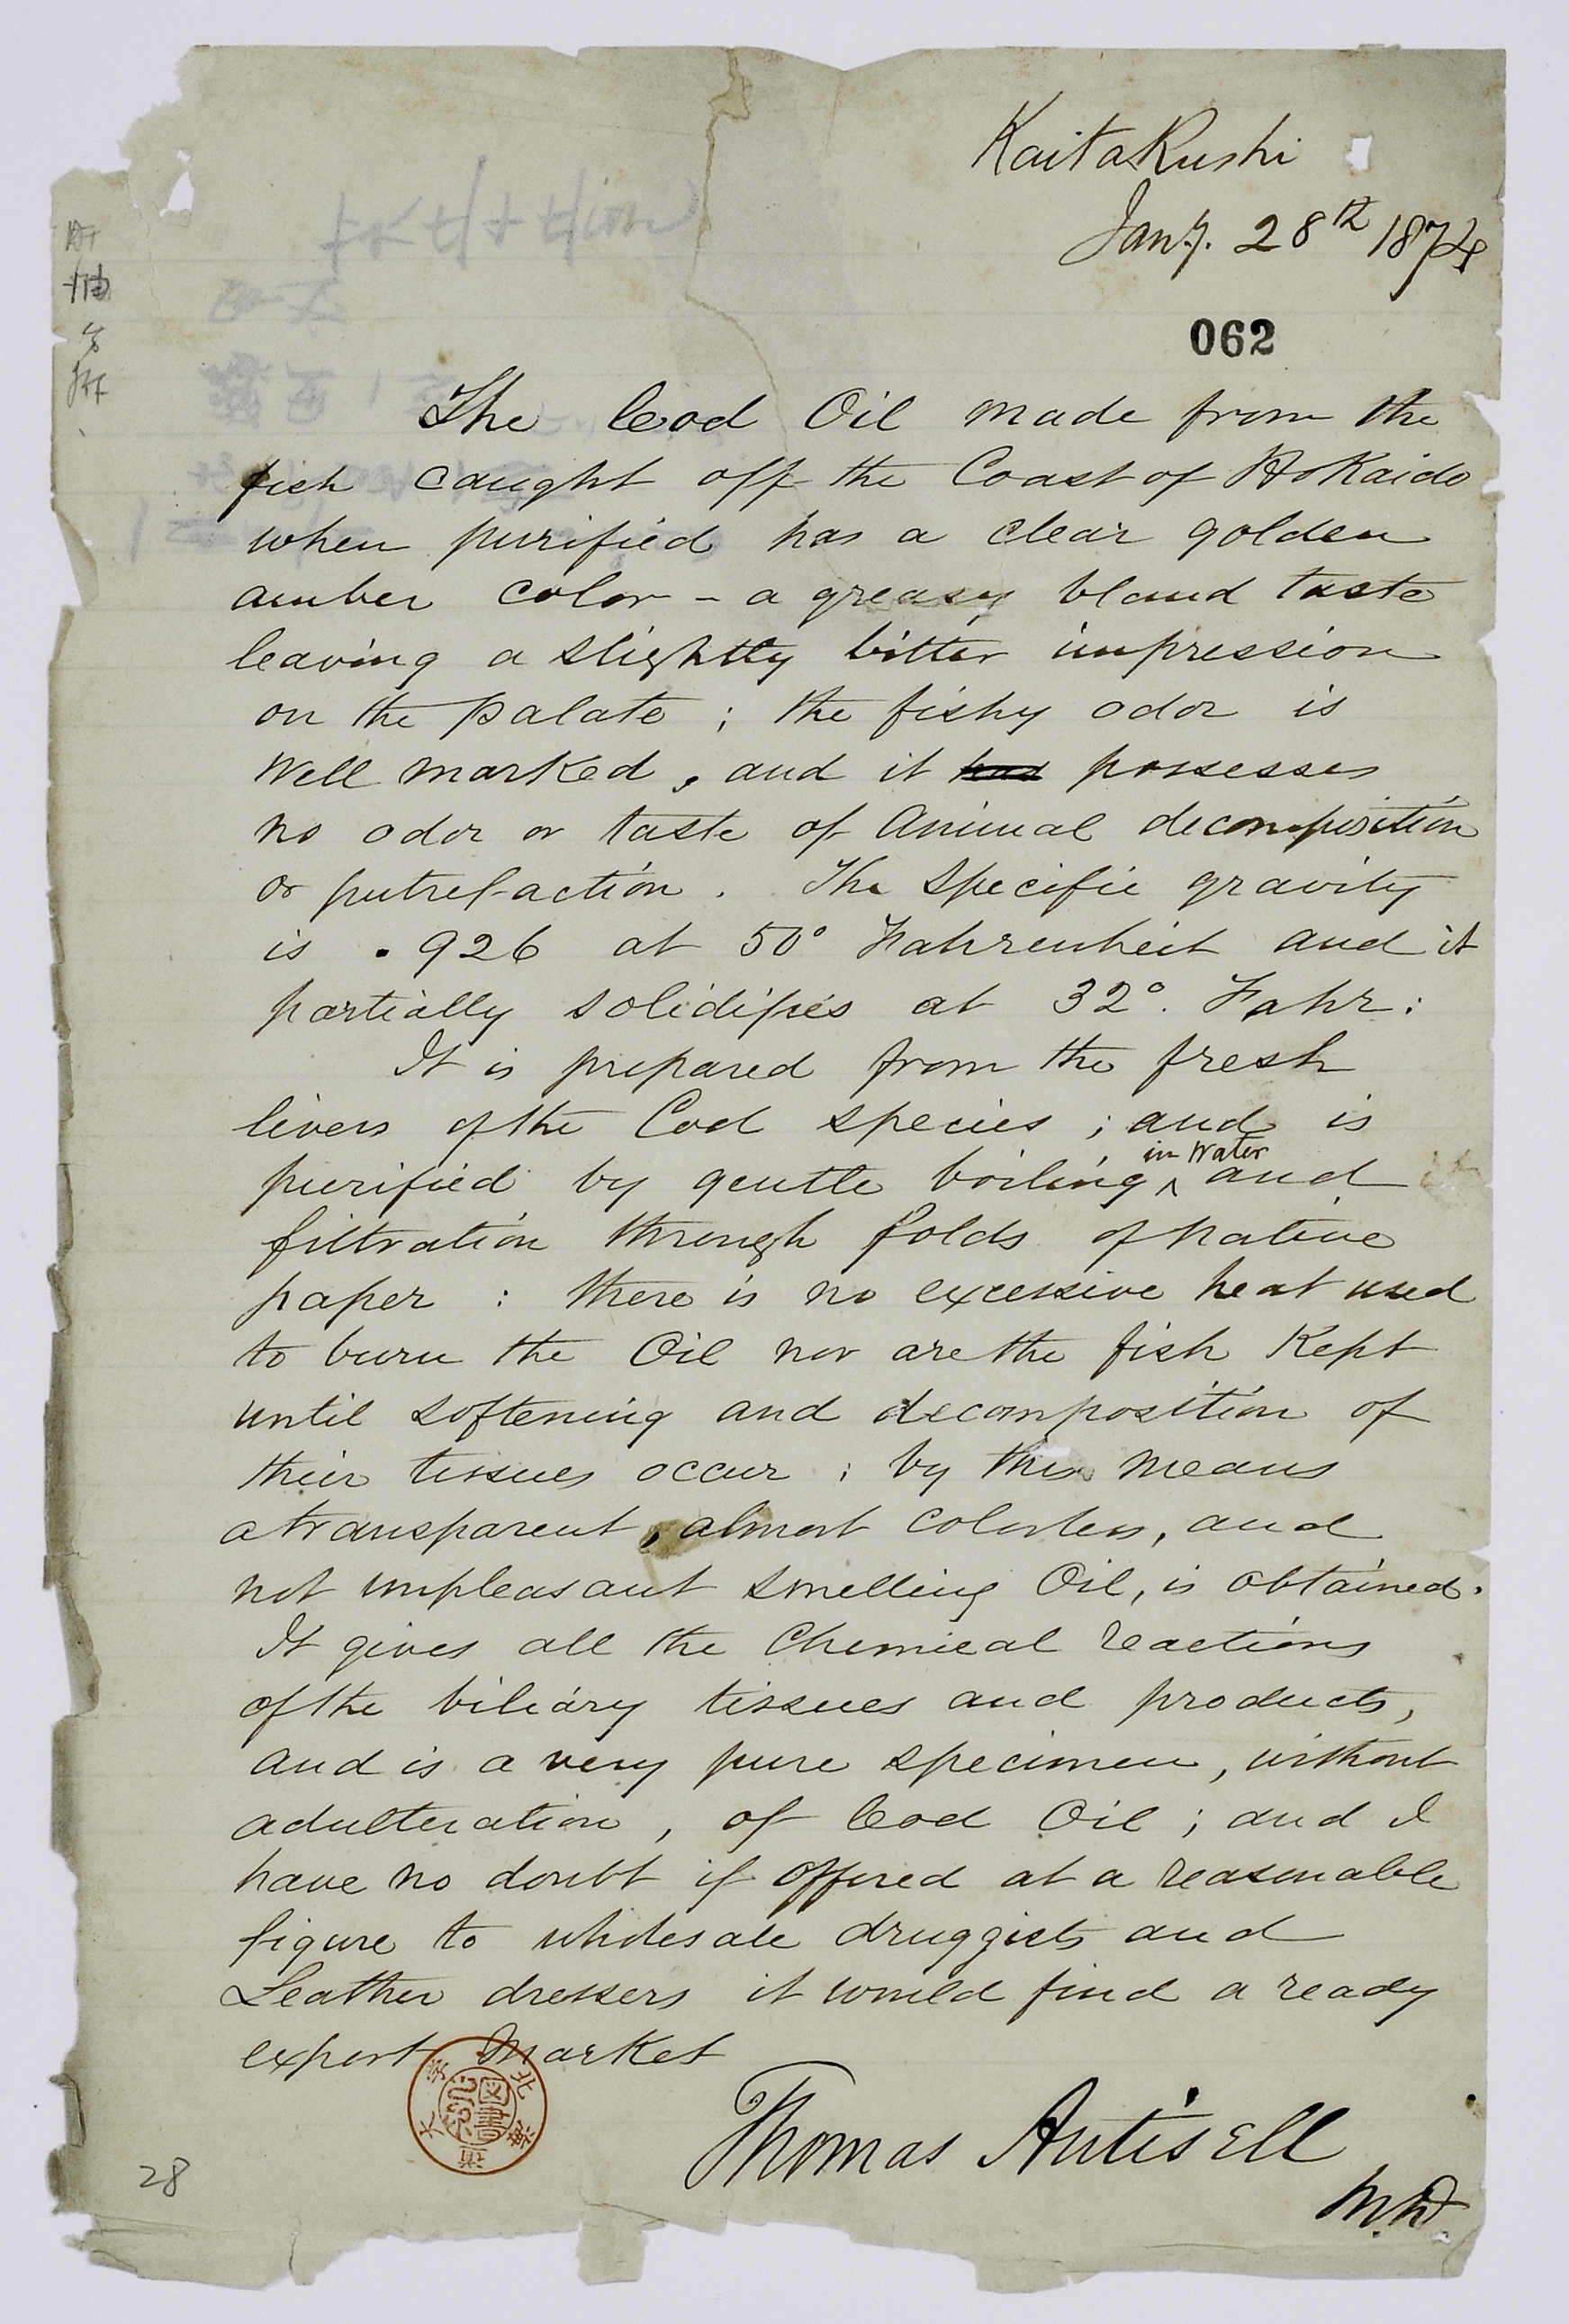 KaitaKushi
Jany. 28th 1874
062
The Cod Oil made from the
fish caught off the Coast of HoKaido
when purified has a clear golden
amber color - a greasy bland taste
leaving a slightly bitter impression
on the palate ; the fishy odor is
well marked, and it has possesses
no odor or taste of Animal decomposition
or putrefaction. The Specific gravity
is .926 at 50° Fahrenheit and it
partially solidifies at 32°. Fahr:
It is prepared from the fresh
livers of the Cod species ; and is
purified by gentle boiling in water and
filtration through folds of native
paper : there is no excessive heat used
to burn the Oil nor are the fish Kept
until softening and decomposition of
their tissues occur ; by this means
a transparent, almost colorless, and
not unpleasant smelling Oil, is obtained.
It gives all the Chemical reactions
of the biliary tissues and products,
and is a very pure specimen, without
adulteration, of Cod Oil ; and I
have no doubt if offered at a reasonable
figure to wholesale druggists and
Leather dressers it would find a ready
export Market
北海道大学
図書
Thomas Antisell
M.D.
28